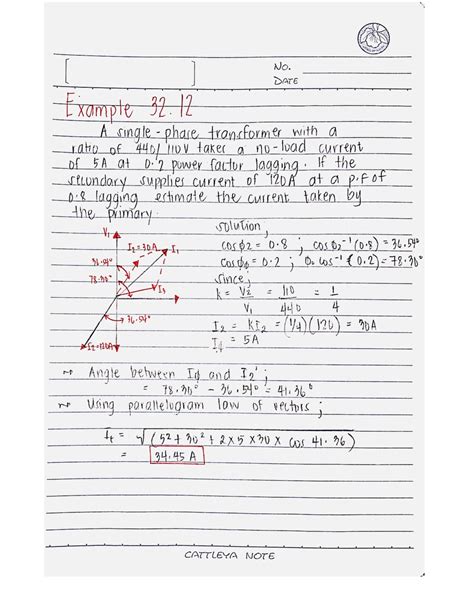 NO.
DATE
Example 32.12
A single-phase transformer with a
ratio of 440/110V takes a no-load current
of 5A at 0.2 power factor lagging. If the
secondary supplies current of 120A at a p.f of
0.8 lagging estimate the current taken by
the primary.
V₁
I₂'=30A
I₁
36.54°
78.30°
I₂=120A
solution,
cosϕ2 = 0.8 ; cosϕ2⁻¹(0.8) = 36.54°
cosϕ₀ = 0.2 ; cos⁻¹(0.2) = 78.30°
since,
k = V₂/V₁ = 110/440 = 1/4
I₂ = KI₂ = (1/4)(120) = 30A
= 5A
Angle between Iϕ and I₂' ;
= 78.30° - 36.54° = 41.36°
Using parallelogram law of vectors ;
= √(5² + 30² + 2 x 5 x 30 x cos 41.36)
= 34.45 A
CATTLEYA NOTE